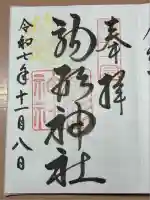 奉拝
駒形神社
令和七年十一月八日